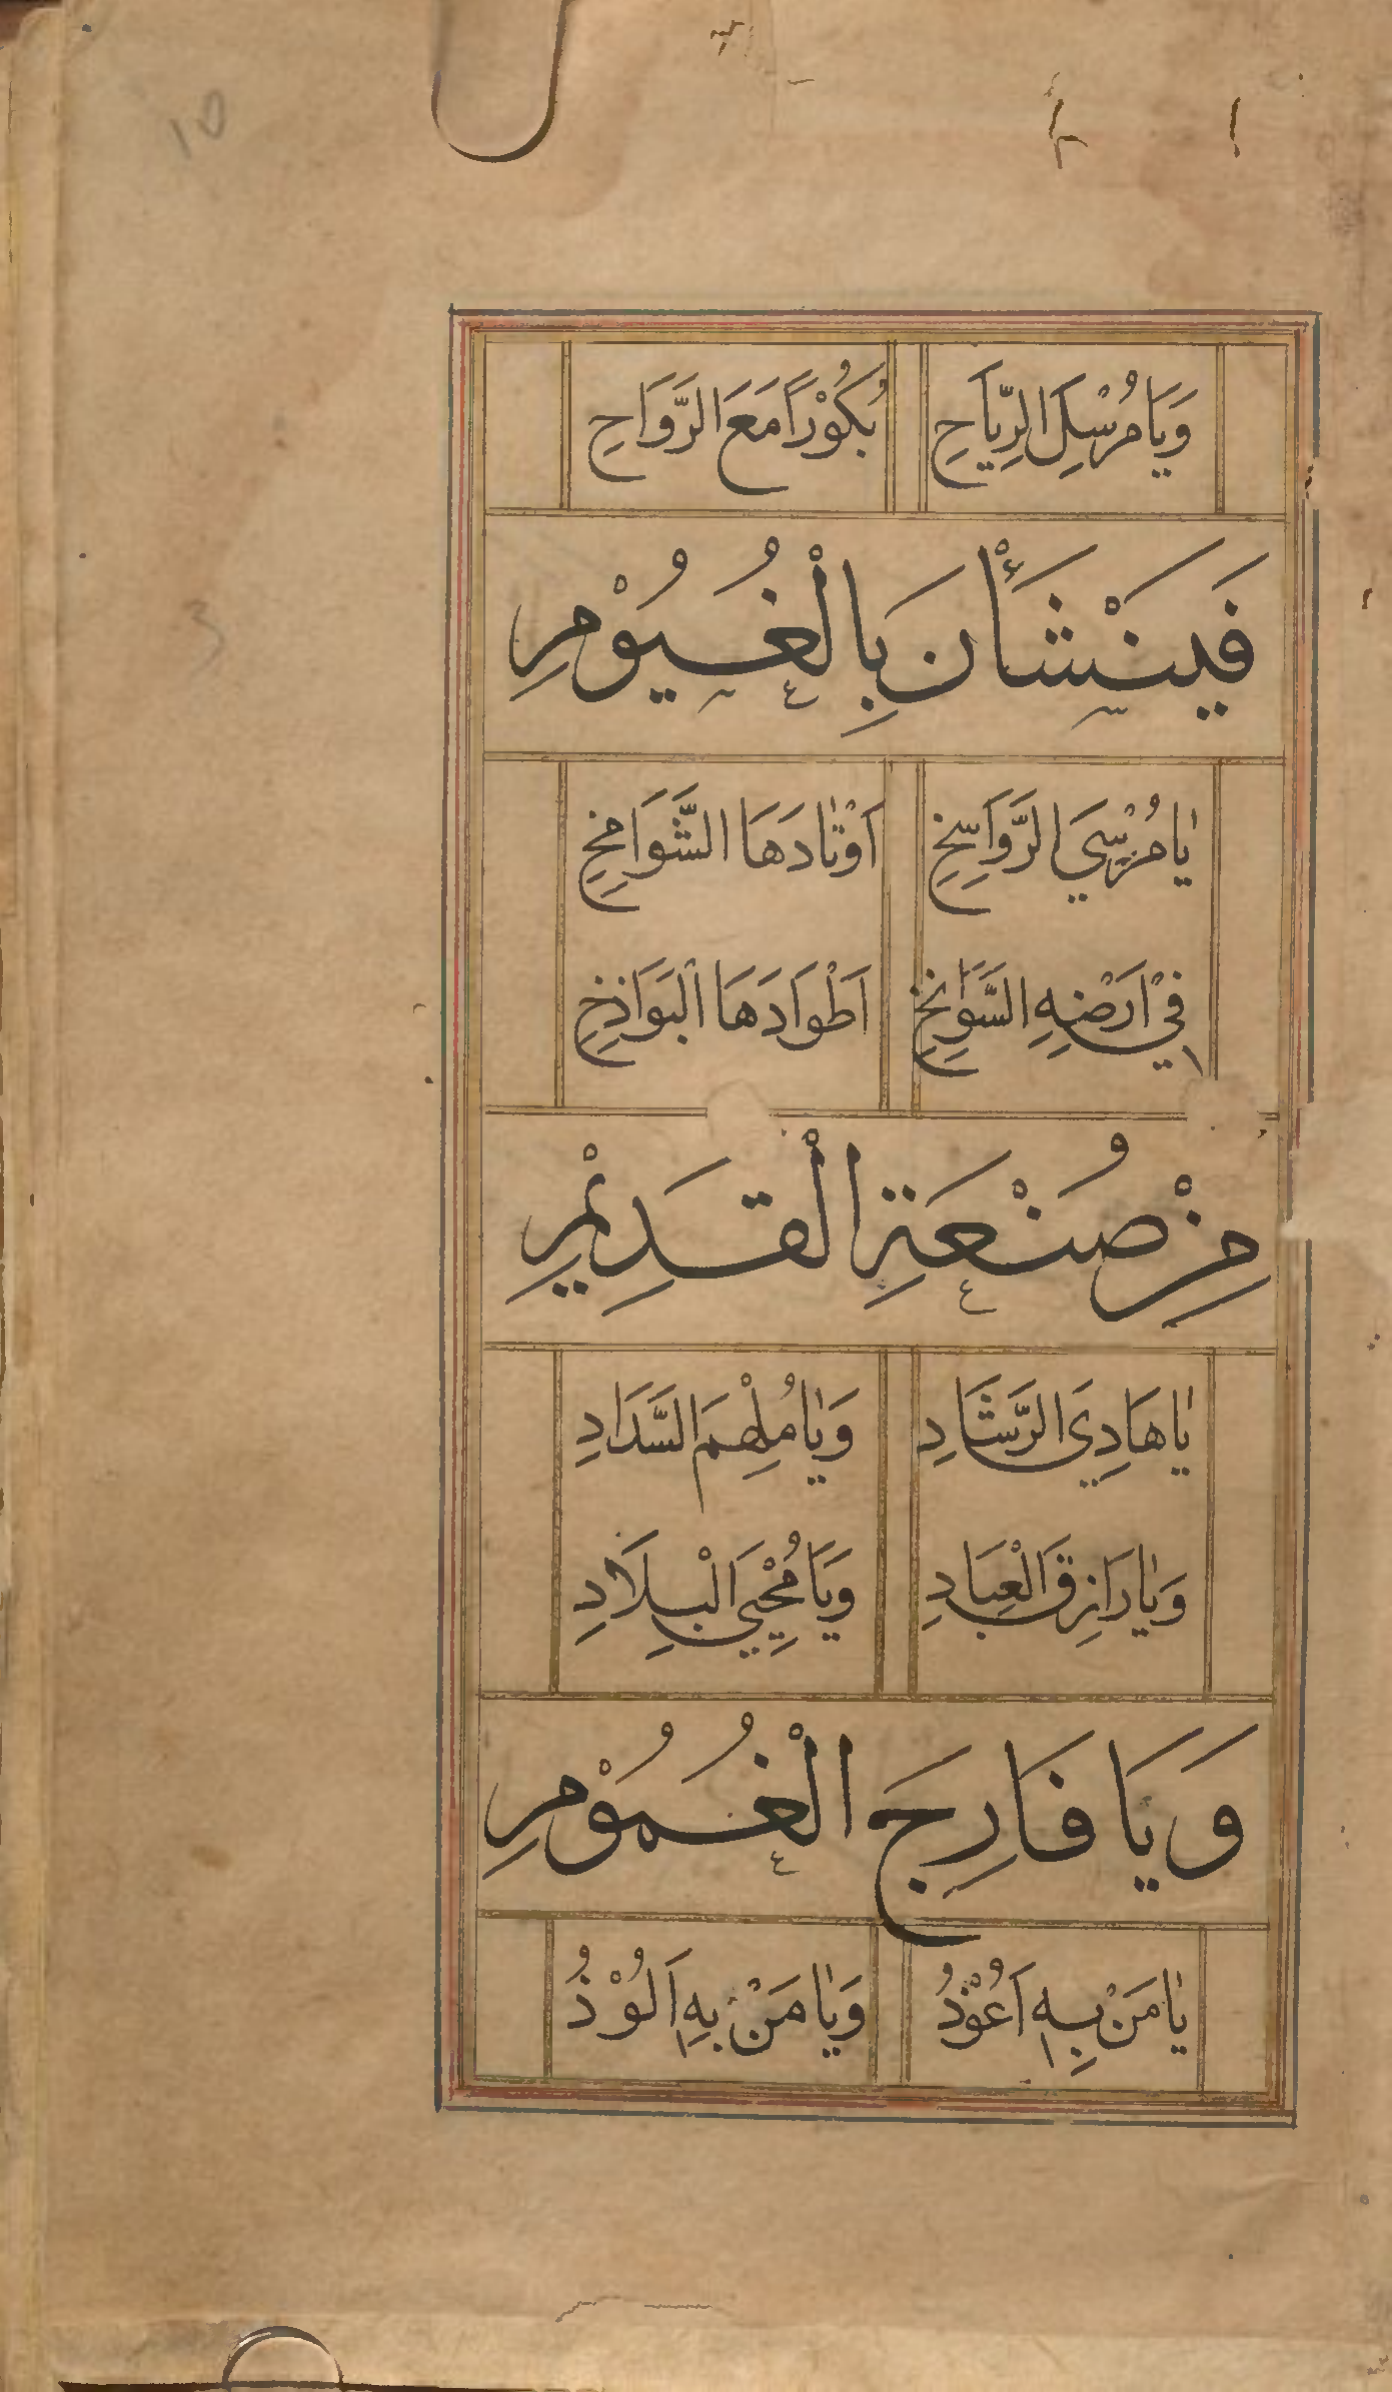 10
وَيَا مُرْسِلَ الرِّيَاحِ بُكُوْرًا مَعَ الرَّوَاحِ
فَيَنْشَأْنَ بِالْغُيُوْمِ
يٰا مُرْسِيَ الرَّوَاسِخِ اَوْتٰادَهَا الشَّوَامِخِ
فِيْ اَرْضِهِ السَّوَانِخِ اَطْوَادَهَا الْبَوَاذِخِ
مِنْ صُنْعَةِ الْقَدِيْمِ
يٰا هَادِيَ الرَّشَادِ وَيٰا مُلْهِمَ السَّدَادِ
وَيٰا رَازِقَ الْعِبَادِ وَيَا مُحْيِيَ الْبِلَادِ
وَيَا فَارِجَ الْغُمُوْمِ
يٰا مَنْ بِهِ اَعُوْذُ وَيٰا مَنْ بِهِ اَلُوْذُ